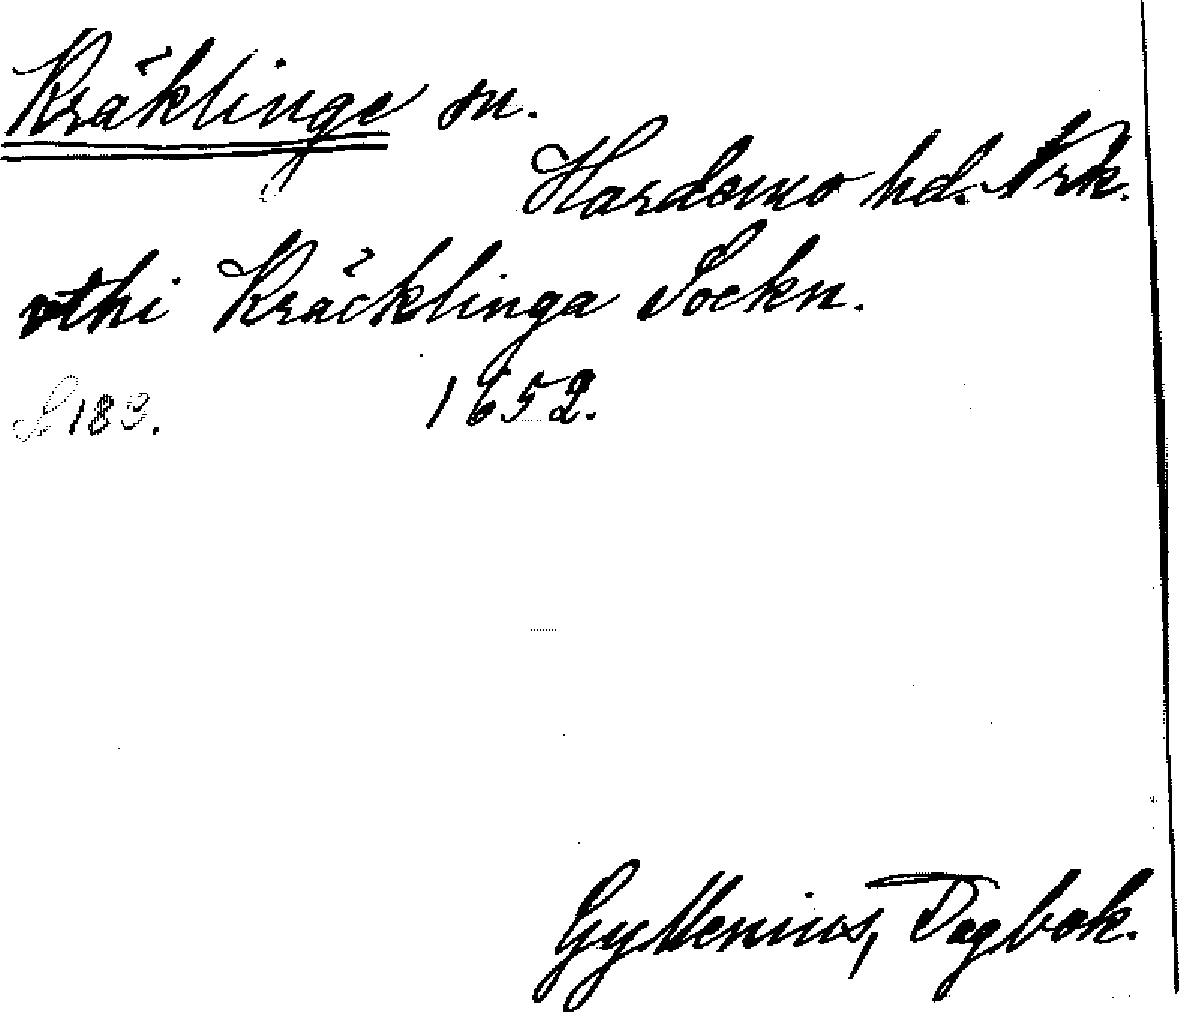 Kräklinge sn.
Hardemo hd. Nrk.
thi Kräcklinga Sockn.
S 183. 1652.
Gyllenius, Dagbok.